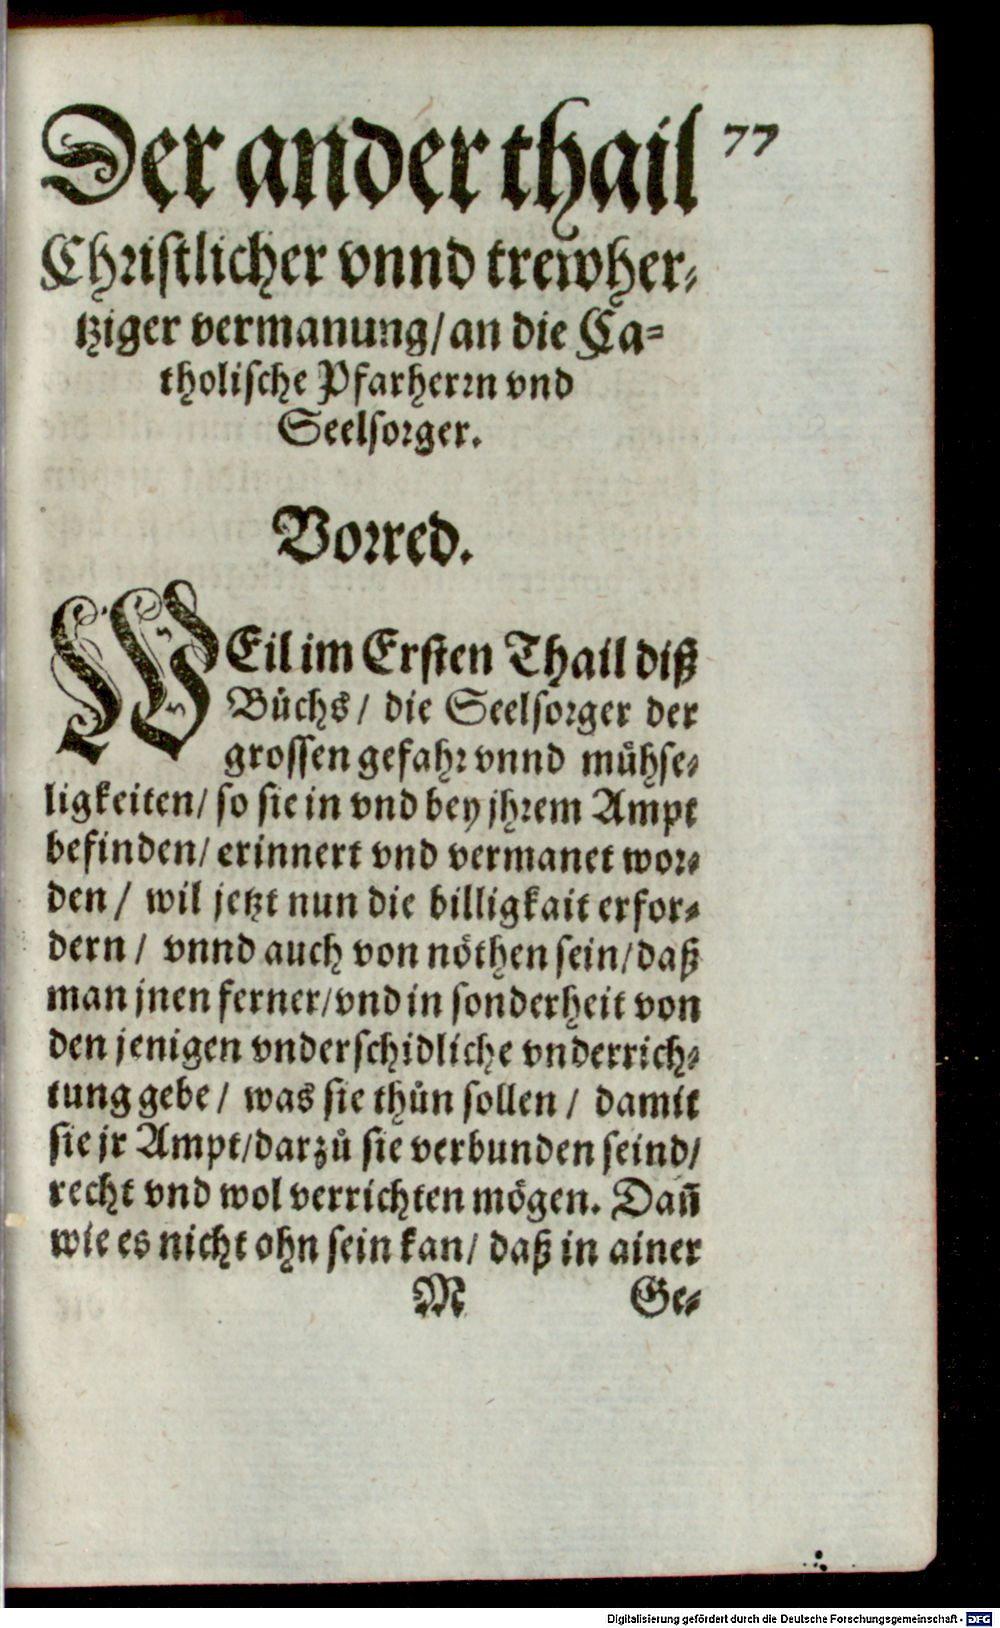 Der ander thail 77
Christlicher vnnd trewher⸗
tziger vermanung/ an die Ca⸗
tholische Pfarherrn vnd
Seelsorger.
Vorred.
WEil im Ersten Thail diß
Bůchs/ die Seelsorger der
grossen gefahr vnnd mühse⸗
ligkeiten/ so sie in vnd bey jhrem Ampt
befinden/ erinnert vnd vermanet wor⸗
den/ wil jetzt nun die billigkait erfor⸗
dern/ vnnd auch von nöthen sein/ daß
man jnen ferner/ vnd in sonderheit von
den jenigen vnderschidliche vnderrich⸗
tung gebe/ was sie thůn sollen/ damit
sie jr Ampt/ darzů sie verbunden seind/
recht vnd wol verrichten mögen. Dañ
wie es nicht ohn sein kan/ daß in ainer
M Ge⸗
Digitalisierung gefördert durch die Deutsche Forschungsgemeinschaft - DFG